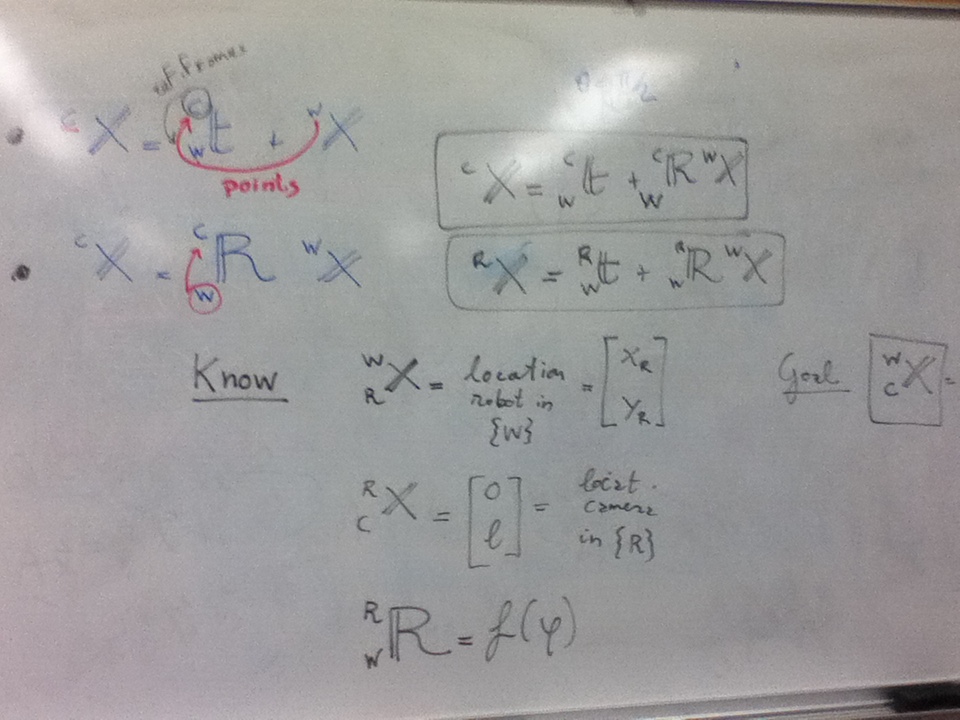 ref. frame
• ᶜX = ᶜ_W t + ᵂX
points
• ᶜX = ᶜ_W R ᵂX
ᶜX = ᶜ_W t + ᶜ_W R ᵂX
ᴿX = ᴿ_W t + ᴿ_W R ᵂX
Know ᵂ_R X = location robot in {W} = [X_R Y_R]
Goal ᵂ_C X =
ᴿ_C X = [0 l] = locat. camera in {R}
ᴿ_W R = f(φ)